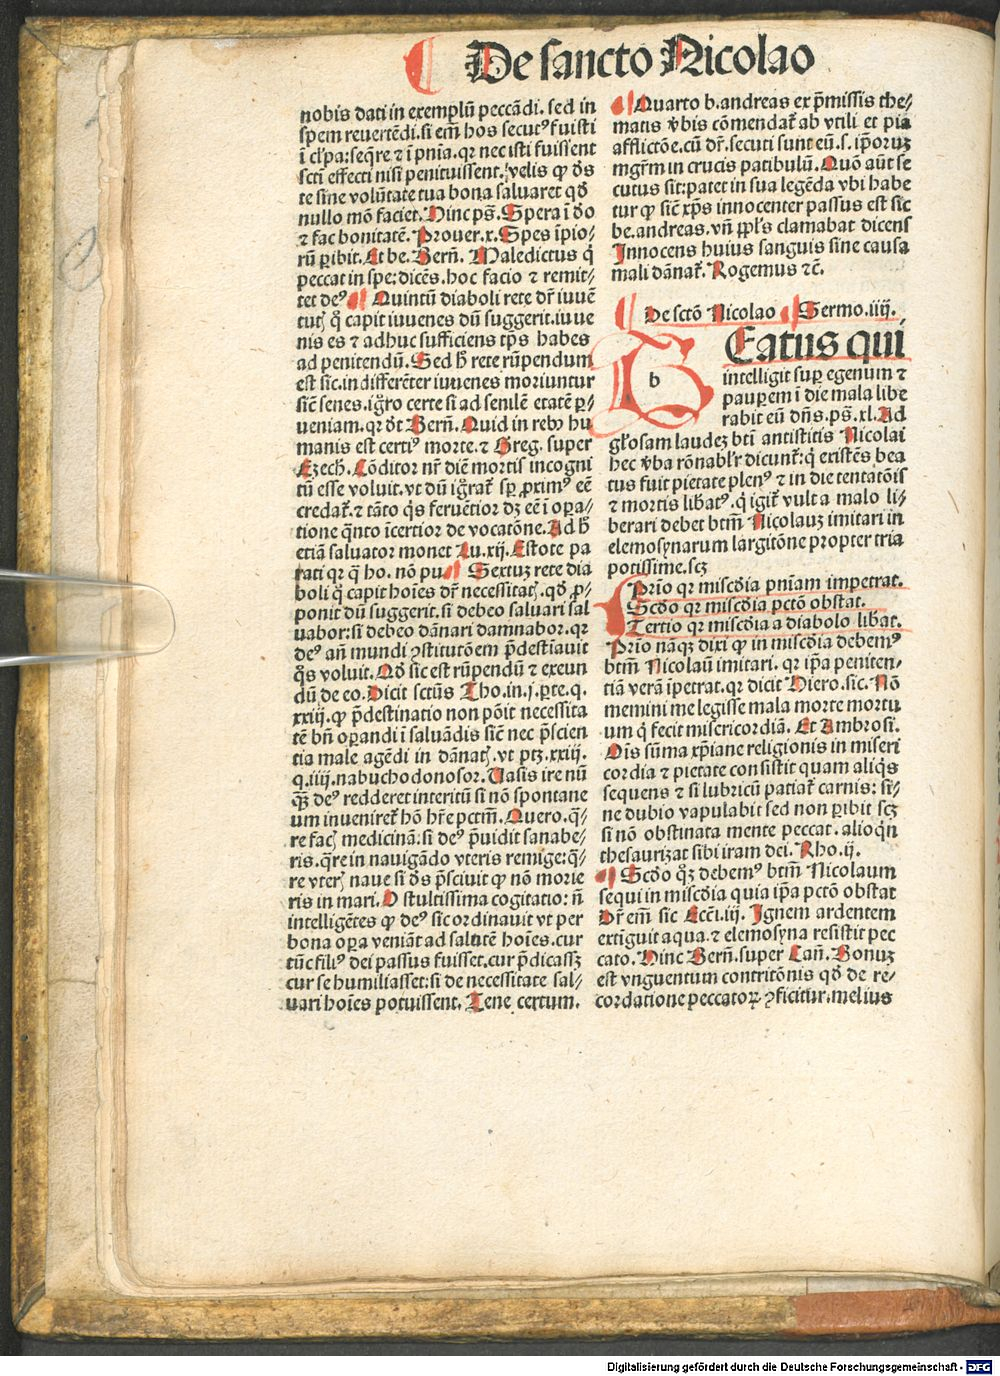 De sancto Nicolao
nobis dati in exemplū peccādi. sed in
spem reuertēdi. si em̄ hos secutꝰ fuisti
ī cl̓pa: seq̄re ⁊ ī pnīa. qr nec isti fuissent
sctī effecti nisi penituissent. velis ꝙ ds̄
te sine volūtate tua bona saluaret qd̄
nullo mō faciet. Hinc ps̄. Spera ī dō
⁊ fac bonitatē. Prouer. x. Spes īpio-
rū ꝑibit. Et be. Bern̄. Maledictus q̇
peccat in spe: dicēs. hoc facio ⁊ remit-
tet deꝰ Quintū diaboli rete dr̄ iuuē
tutꝭ q̇ capit iuuenes dū suggerit. iuue
nis es ⁊ adhuc sufficiens tp̄s habes
ad penitendū. Sed h̄ rete rūpendum
est sic. in differēter iuuenes moriuntur
sic̄ senes. igr̄o certe si ad senilē etatē ꝑ-
ueniam. qr dt̄ Bern̄. Quid in rebꝰ hu
manis est certiꝰ morte. ⁊ Greg. super
Ezech. Cōditor nr̄ diē mortis incogni
tū esse voluit. vt dū igr̄at̄ sꝑ ꝓximꝰ eē
credat̄. ⁊ tāto q̇s feruētior dꝫ eē ī oꝑa-
tione q̄nto īcertior de vocatōne. Ad h̄
etiā saluator monet Lu. xij. Estote pa
rati qr q̄ ho. nō pu. Sextuꝫ rete dia
boli q̇ capit hoīes dr̄ necessitatꝭ. qd̄ ꝓ-
ponit dū suggerit. si debeo saluari sal
uabor: si debeo dānari damnabor. qr
deꝰ an̄ mundi ꝯstitutōem p̄destiauit
q̇s voluit. Qd̄ sic est rūpendū ⁊ exeun
dū de eo. Dicit sctūs Tho. in. j. ꝑte. q.
xxiij. ꝙ p̄destinatio non pōit necessita
tē bn̄ oꝑandi ī saluādis sic̄ nec p̄scien
tia male agēdi in dānatꝭ. vt ptꝫ. xxiij.
q. iiij. nabuchodonosor. Vasis ire nū
q̄ꝫ deꝰ redderet interitū si nō spontane
um inueniret̄ hō hr̄e pctm̄. Quero. q̄-
re facꝭ medicinā. si deꝰ p̄uidit sanabe-
ris. q̄re in nauigādo vteris remige: q̄-
re vterꝭ naue si ds̄ p̄sciuit ꝙ nō morie
ris in mari. O stultissima cogitatio: n̄
intelligētes ꝙ deꝰ sic ordinauit vt per
bona oꝑa veniāt ad salutē hoīes. cur
tūc filiꝰ dei passus fuisset. cur p̄dicassꝫ
cur se humiliasset: si de necessitate sal-
uari hoīes potuissent. Tene certum.
Quarto b. andreas ex p̄missis the-
matis v̄bis cōmendat̄ ab vtili et pia
afflictōe. cū dr̄. secuti sunt eū. s. ip̄oruꝫ
mgr̄m in crucis patibulū. Quō aūt se
cutus sit: patet in sua legēda vbi habe
tur ꝙ sic̄ xp̄s innocenter passus est sic
be. andreas. vn̄ ppl̓s clamabat dicens
Innocens huius sanguis sine causa
mali dānat̄. Rogemus ⁊c̄.
De sctō Nicolao Sermo. iiij.
b
Eatus qui
intelligit suꝑ egenum ⁊
pauꝑem ī die mala libe
rabit eū dn̄s. ps̄. xl. Ad
gl̓osam laudeꝫ btī antistitis Nicolai
hec v̄ba rōnabl̓r dicunt̄: q̇ existēs bea
tus fuit pietate plenꝰ ⁊ in die tentatōis
⁊ mortis lib̄atꝰ. q̇ igit̄ vult a malo li-
berari debet btm̄ Nicolauꝫ imitari in
elemosynarum largitōne propter tria
potissime. scꝫ
Prīo qr mīscdia pnīam impetrat.
Scd̄o qr mīscdia pctō obstat.
Tertio qr mīscdia a diabolo lib̄at.
Prīo nāqꝫ dixi ꝙ in mīscdia debemꝰ
btm̄ Nicolaū imitari. qr ip̄a peniten-
tiā verā īpetrat. qr dicit Hiero. sic. Nō
memini me legisse mala morte mortu
um q̇ fecit misericordiā. Et Ambrosī.
Oīs sūma xp̄iane religionis in miseri
cordia ⁊ pietate consistit quam aliq̇s
sequens ⁊ si lubricū patiat̄ carnis: si-
ne dubio vapulabit sed non ꝑibit scꝫ
si nō obstinata mente peccat. alioq̇n
thesaurizat sibi iram dei. Rho. ij.
Scd̄o q̇ꝫ debemꝰ btm̄ Nicolaum
sequi in mīscdia quia ip̄a pctō obstat
Dr̄ em̄ sic Eccī. iij. Ignem ardentem
extiguit aqua. ⁊ elemosyna resistit pec
cato. Hinc Bern̄. super Can̄. Bonuꝫ
est vnguentum contritōnis qd̄ de re-
cordatione peccatoꝝ ꝯficitur. melius
Digitalisierung gefördert durch die Deutsche Forschungsgemeinschaft - DFG